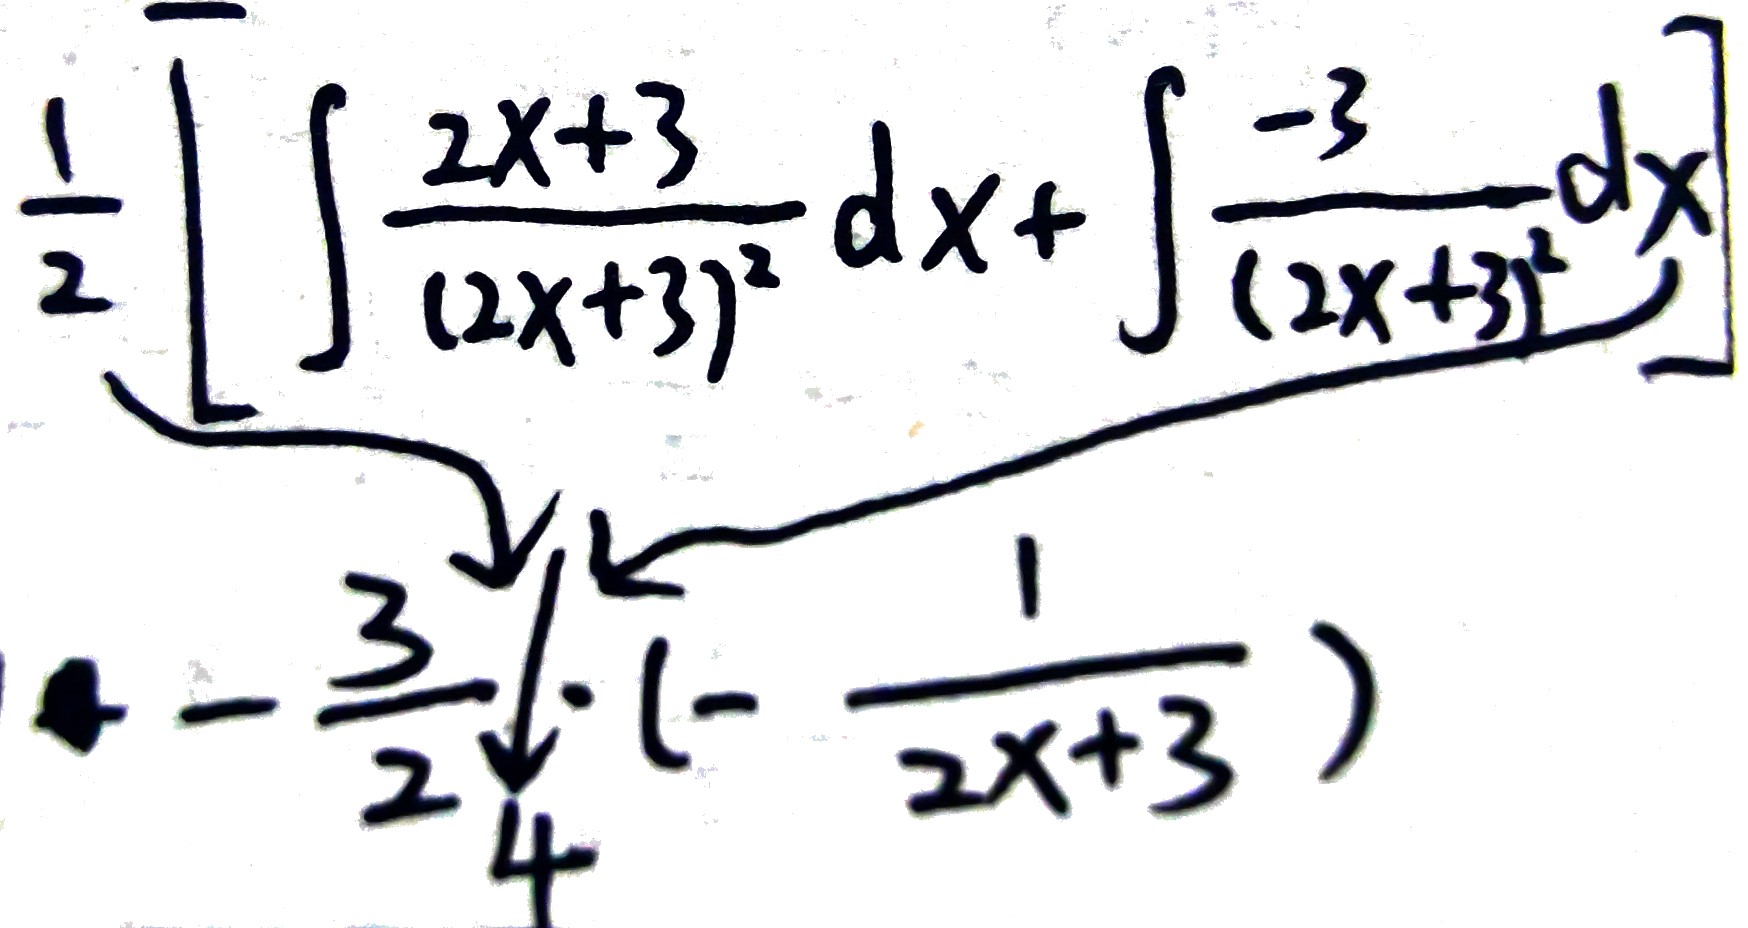 1/2 [ ∫ (2x+3)/(2x+3)² dx + ∫ -3/(2x+3)² dx ]
- 3/2 · (- 1/(2x+3))
4